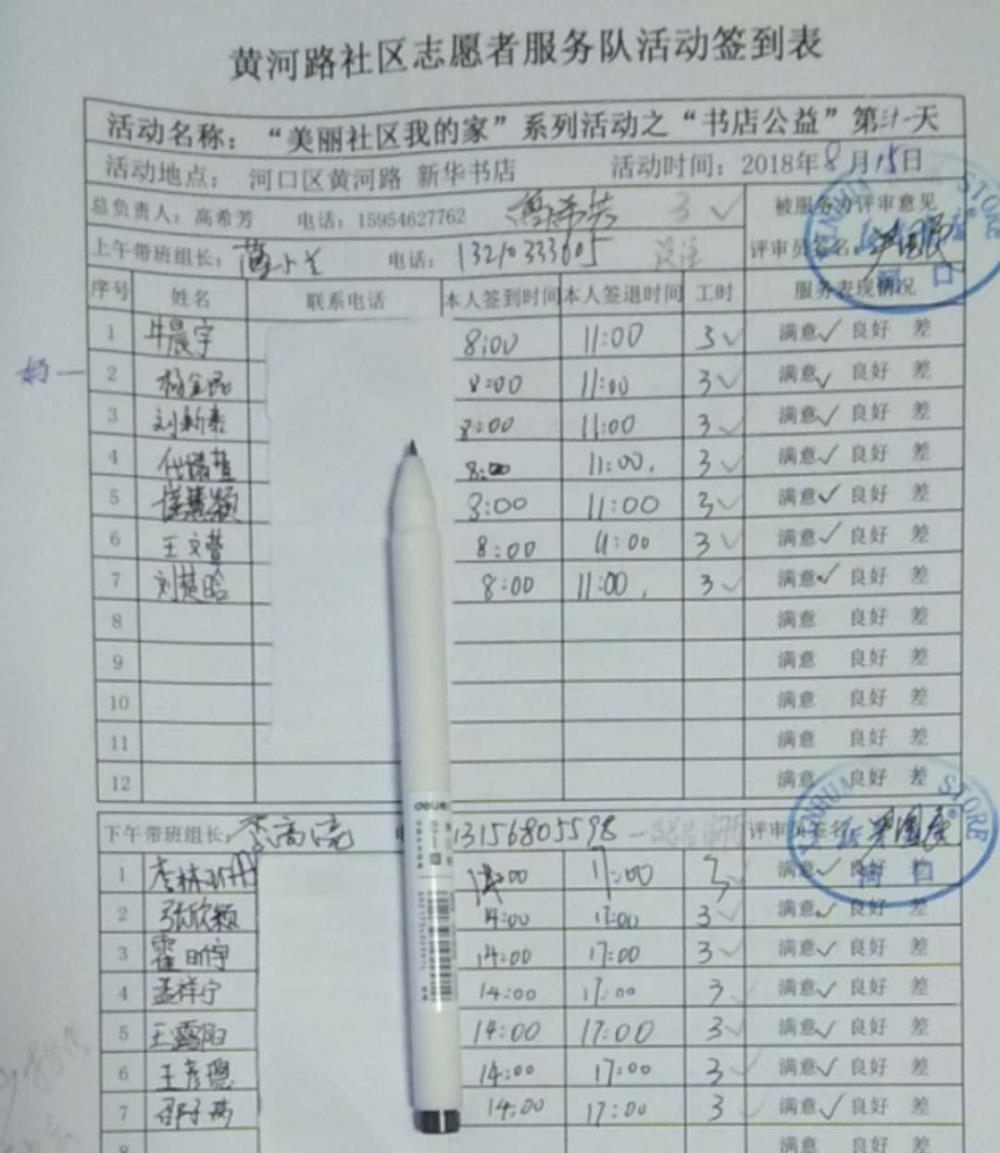 黄河路社区志愿者服务队活动签到表
活动名称：“美丽社区我的家”系列活动之“书店公益”第 天
活动地点： 河口区黄河路 新华书店 活动时间：2018年8月15日
总负责人：高希芳 电话：15954627762 3 被服务方评审意见
上午带班组长： 电话：13210333605 评审员签名：
序号 姓名 联系电话 本人签到时间 本人签退时间 工时 服务表现情况
1 牛晨宇 8:00 11:00 3 满意✓ 良好 差
2 8:00 11:00 3 满意✓ 良好 差
3 刘新泰 8:00 11:00 3 满意✓ 良好 差
4 8:00 11:00 3 满意✓ 良好 差
5 8:00 11:00 3 满意✓ 良好 差
6 王文萱 8:00 11:00 3 满意✓ 良好 差
7 刘楚晗 8:00 11:00 3 满意✓ 良好 差
8 满意 良好 差
9 满意 良好 差
10 满意 良好 差
11 满意 良好 差
12 满意 良好 差
下午带班组长： 13156805598 评审员签名
1 14:00 17:00 3 满意✓ 良好 差
2 张欣颖 14:00 17:00 3 满意✓ 良好 差
3 14:00 17:00 3 满意✓ 良好 差
4 孟祥宁 14:00 17:00 3 满意✓ 良好 差
5 王露阳 14:00 17:00 3 满意✓ 良好 差
6 王彦聪 14:00 17:00 3 满意✓ 良好 差
7 14:00 17:00 3 满意✓ 良好 差
8 满意 良好 差
STORE
河口
deli
STORE
河口